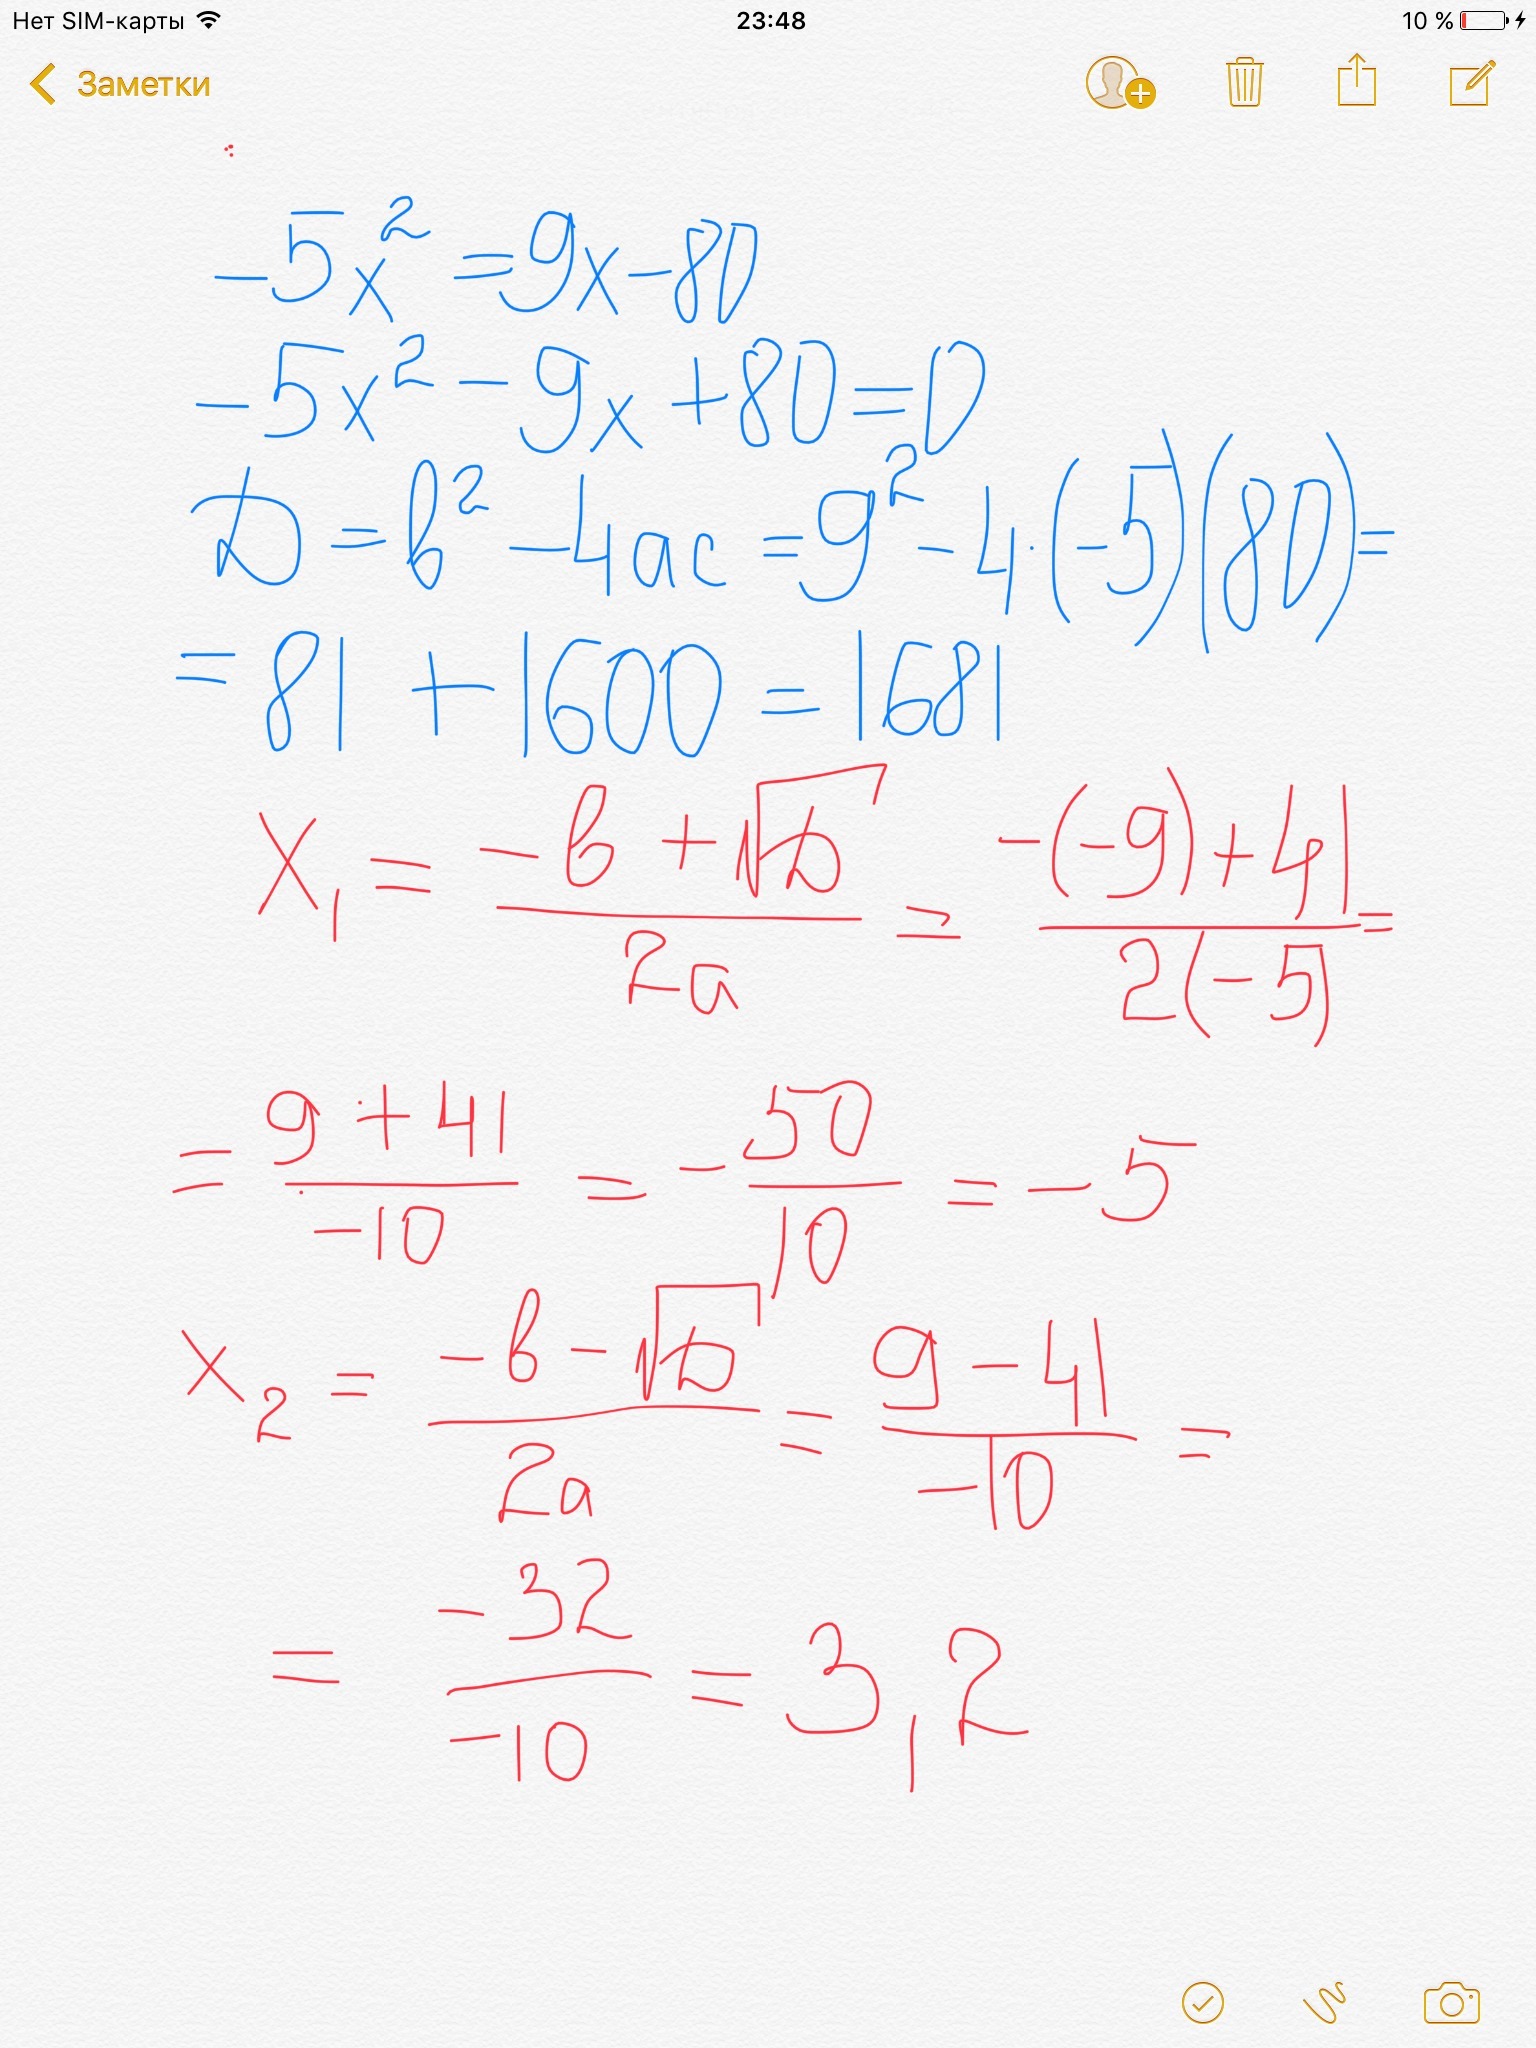 Нет SIM-карты 23:48 10 %
Заметки
-5x² = 9x - 80
-5x² - 9x + 80 = 0
D = b² - 4ac = 9² - 4·(-5)(80) =
= 81 + 1600 = 1681
x₁ = (-b + √D)/(2a) = (-(-9) + 41)/(2(-5)) =
= (9 + 41)/(-10) = -50/10 = -5
x₂ = (-b - √D)/(2a) = (9 - 41)/(-10) =
= (-32)/(-10) = 3,2